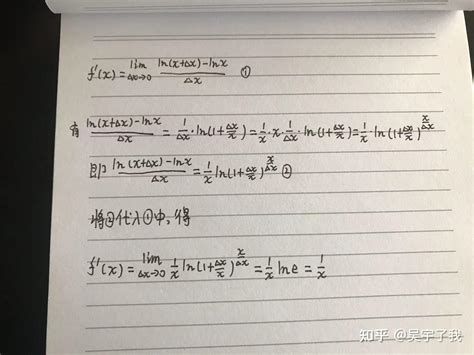 f'(x) = lim Δx→0 ln(x+Δx)-lnx / Δx ①
有 ln(x+Δx)-lnx / Δx = 1/Δx · ln(1+Δx/x) = 1/x · x · 1/Δx ln(1+Δx/x) = 1/x · ln(1+Δx/x)^(x/Δx)
即 ln(x+Δx)-lnx / Δx = 1/x ln(1+Δx/x)^(x/Δx) ②
将②代入①中,得
f'(x) = lim Δx→0 1/x ln(1+Δx/x)^(x/Δx) = 1/x lne = 1/x
知乎 @吴宇了我